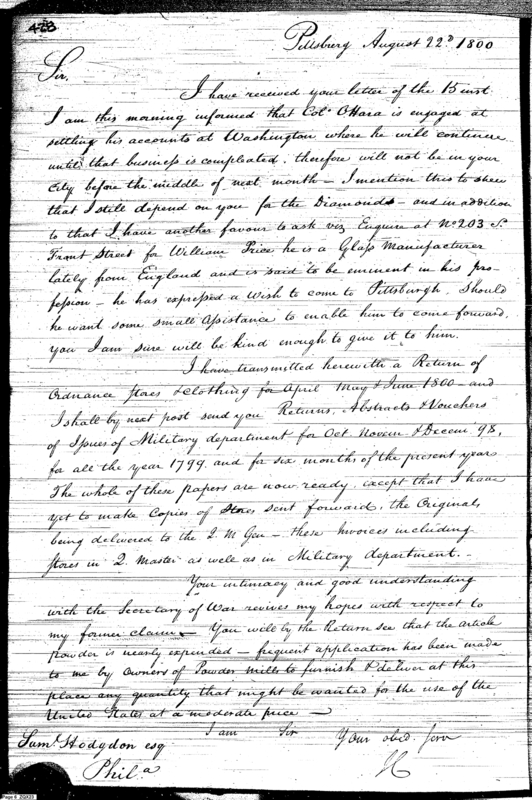 423
Pittsburg August 22d 1800
Sir,
I have received your letter of the 15 inst.
I am this morning informed that Col. OHara is engaged at
settling his accounts at Washington where he will continue
until that business is compleated. therefore will not be in your
City before the middle of next month – I mention this to shew
that I still depend on you for the Diamonds – and in addition
to that I have another favour to ask viz Enquire at No 203 S.
Front Street for William Price he is a Glass Manufacturer
lately from England and is said to be eminent in his pro-
fession – he has expressed a Wish to come to Pittsburgh. Should
he want some small assistance to enable him to come forward.
you I am sure will be kind enough to give it to him.
I have transmitted herewith a Return of
Ordnance Stores & clothing for April May & June 1800 – and
I shall by next post send you Returns, Abstracts & Vouchers
of Issues of Military department for Oct. Novem. & Decem. 98,
for all the year 1799. and for six months of the present year.
The whole of these papers are now ready. except that I have
yet to make Copies of Stores sent forward, the Originals
being delivered to the Q. M Gen – these Invoices including
Stores in Q. Master as well as in Military department. –
Your intimacy and good understanding
with the Secretary of War revives my hopes with respect to
my former claim – You will by the Return see that the article
powder is nearly expended – frequent application has been made
to me by Owners of Powder mills to furnish & deliver at this
place any quantity that might be wanted for the use of the
United States at a moderate price –
I am Sir Your obed. Serv
Saml. Hodgdon esq
Phila
IC
Page 6 20X23